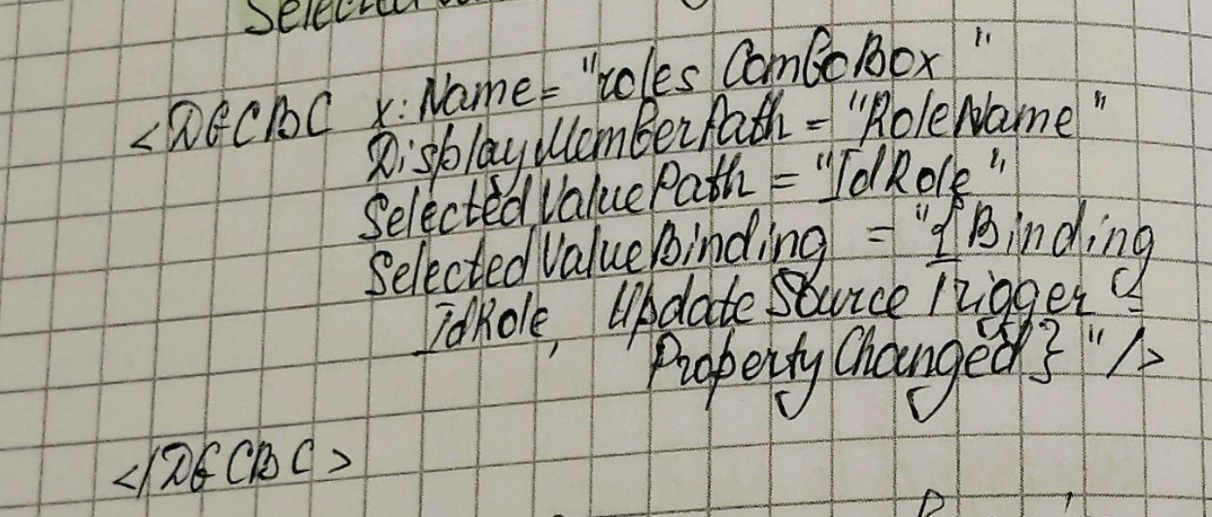 Selected
<DGCBC x:Name="roles ComboBox"
DisplayMemberPath="RoleName"
SelectedValuePath="IdRole"
SelectedValueBinding="{Binding
IdRole, UpdateSourceTrigger=
PropertyChanged}"/>
</DGCBC>